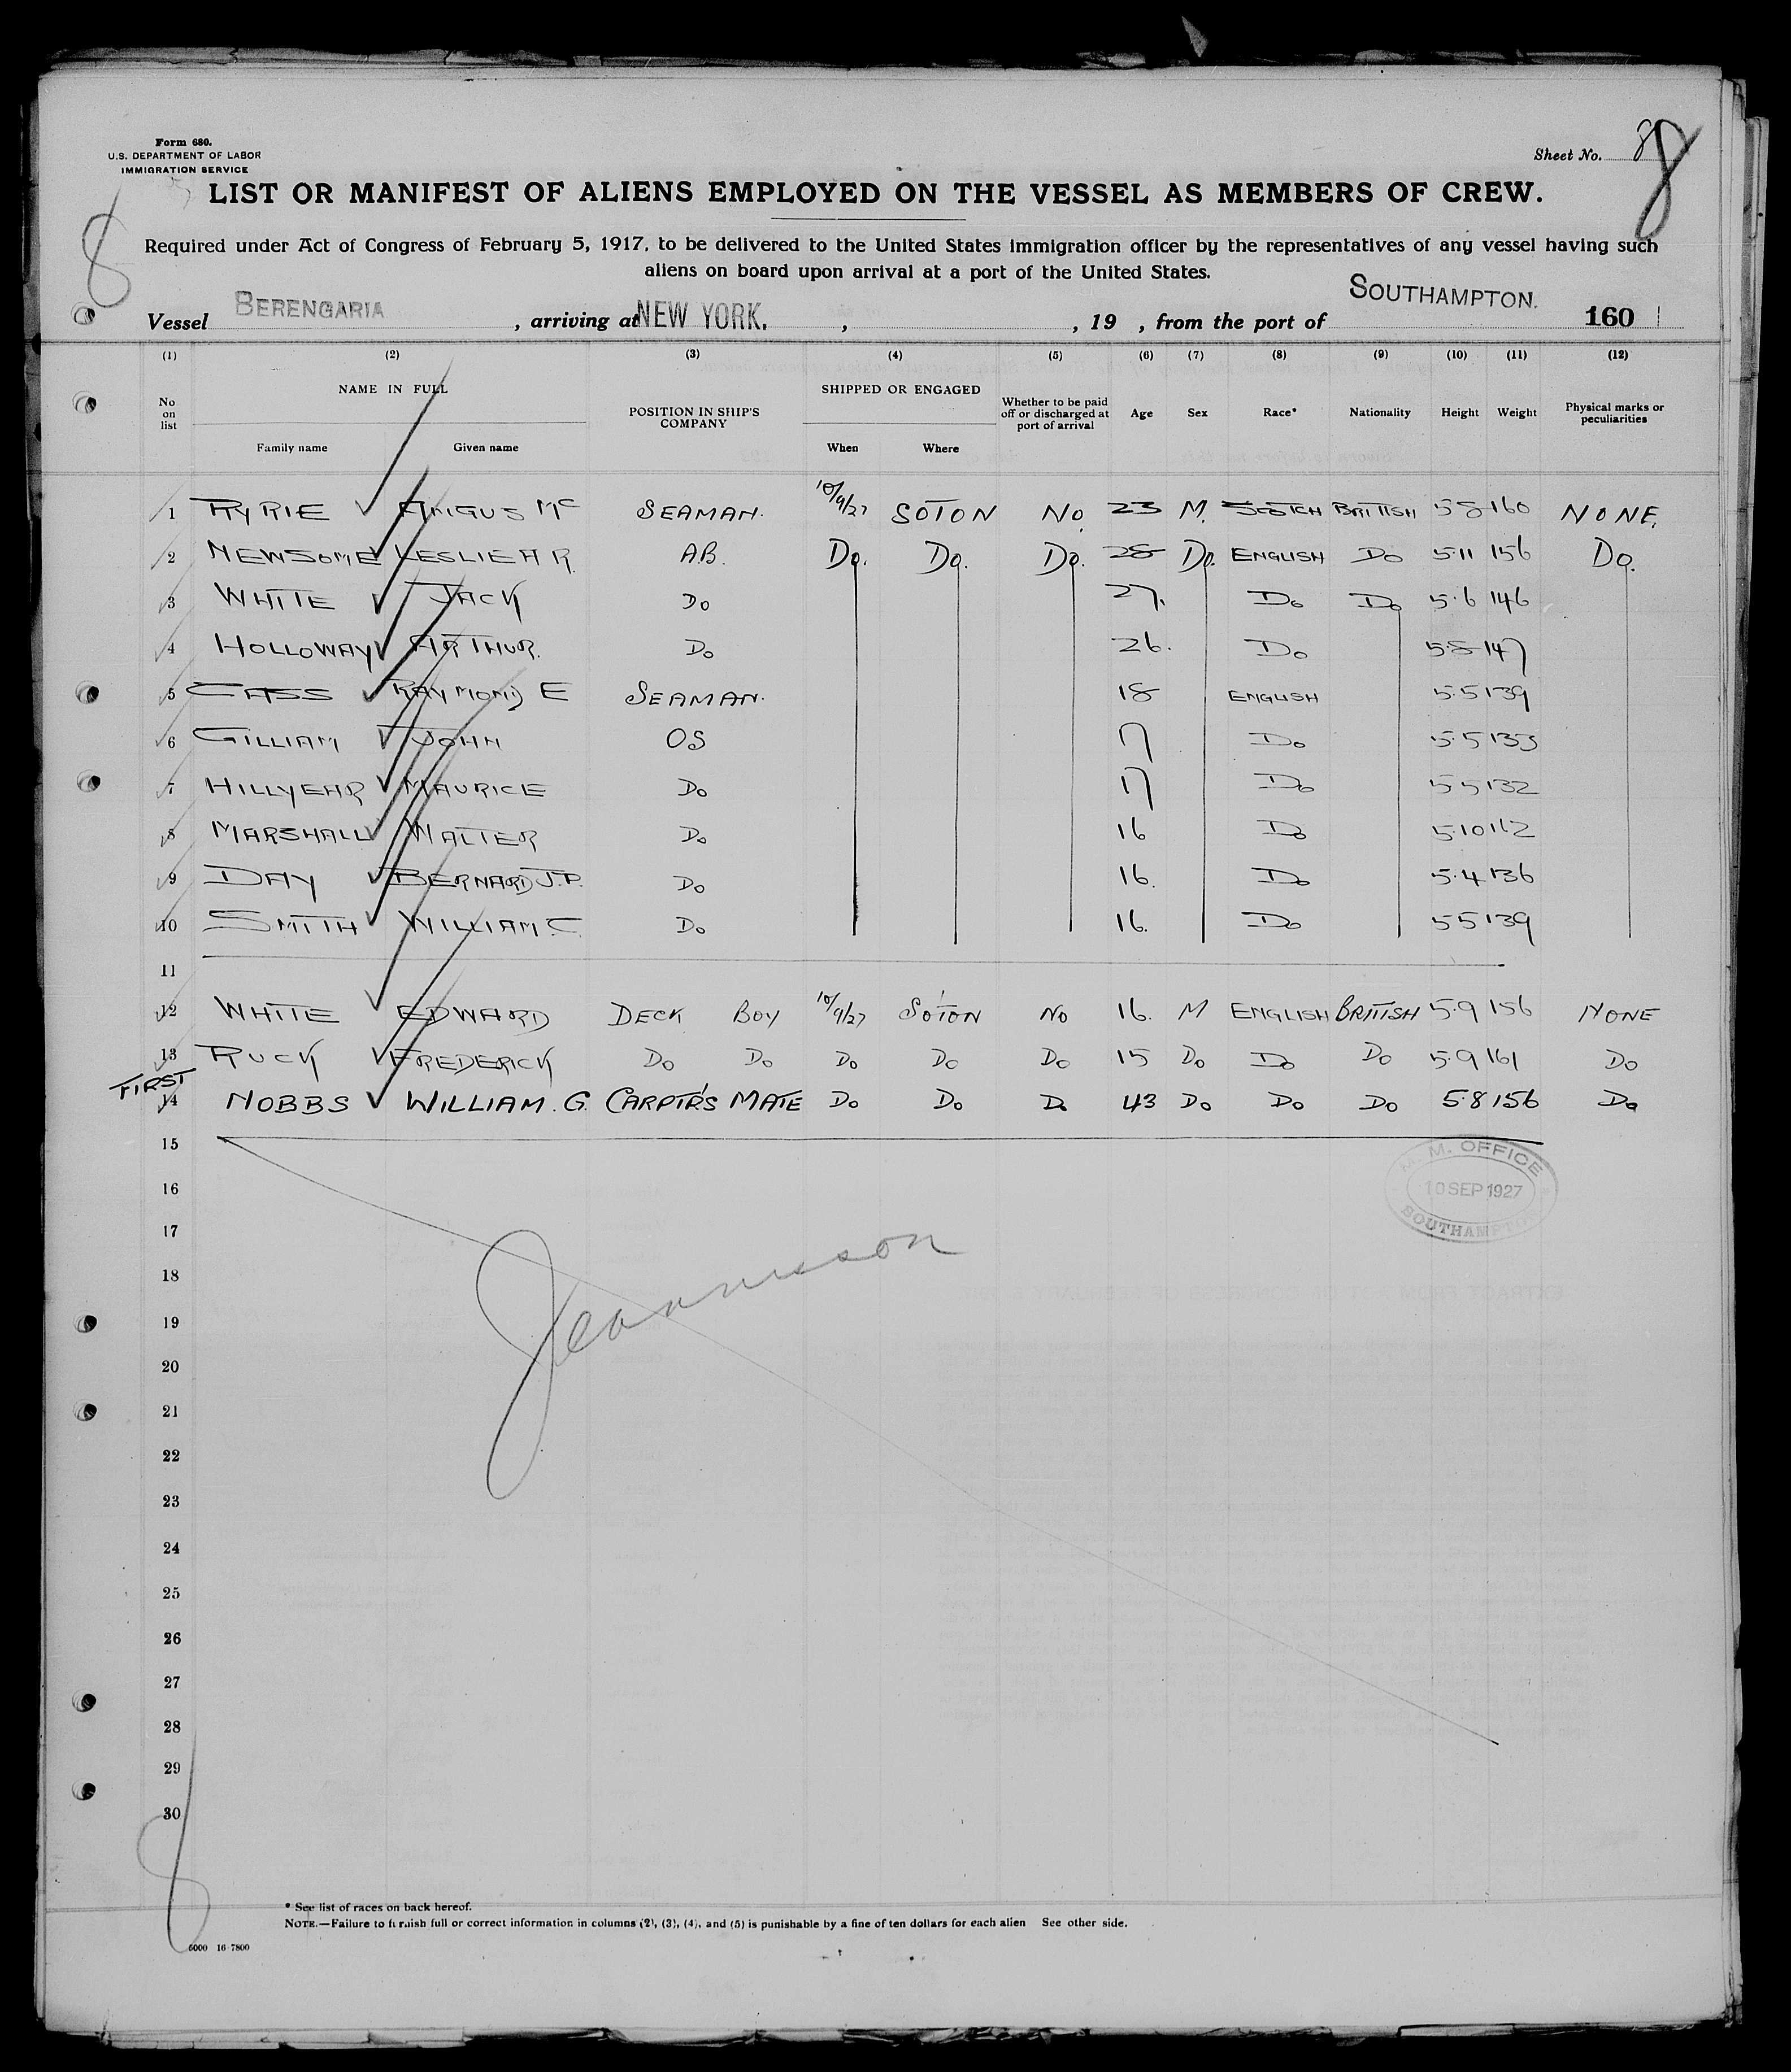 Form 680.
U.S. DEPARTMENT OF LABOR
IMMIGRATION SERVICE
Sheet No. 8
8
8
LIST OR MANIFEST OF ALIENS EMPLOYED ON THE VESSEL AS MEMBERS OF CREW.
Required under Act of Congress of February 5, 1917, to be delivered to the United States immigration officer by the representatives of any vessel having such
aliens on board upon arrival at a port of the United States.
Vessel BERENGARIA, arriving at NEW YORK. , , 19 , from the port of SOUTHAMPTON. 160
(1) (2) (3) (4) (5) (6) (7) (8) (9) (10) (11) (12)
No on list NAME IN FULL Family name Given name POSITION IN SHIP'S COMPANY SHIPPED OR ENGAGED When Where Whether to be paid off or discharged at port of arrival Age Sex Race* Nationality Height Weight Physical marks or peculiarities
1 RYRIE ANGUS Mc SEAMAN. 10/9/27 SOTON NO. 23 M. SCOTCH BRITISH 5 8 160 NONE.
2 NEWSOME LESLIE H R. A.B. Do. Do. Do. 28 Do. ENGLISH Do 5.11 156 Do.
3 WHITE JACK Do 27. Do Do 5.6 146
4 HOLLOWAY ARTHUR. Do 26. Do 5.8 147
5 CASS RAYMOND E SEAMAN. 18 ENGLISH 5.5 139
6 GILLIAM JOHN OS 17 Do 5.5 133
7 HILLYEAR MAURICE Do 17 Do 5 5 132
8 MARSHALL WALTER Do 16 Do 5.10 162
9 DAY BERNARD J.P. Do 16. Do 5.4 136
10 SMITH WILLIAM C. Do 16. Do 5 5 139
11
12 WHITE EDWARD DECK BOY 10/9/27 SO'TON NO 16. M ENGLISH BRITISH 5.9 156 NONE
13 RUCK FREDERICK Do Do Do Do Do 15 Do Do Do 5.9 161 Do
FIRST
14 NOBBS WILLIAM. G. CARPTR'S MATE Do Do Do 43 Do Do Do 5.8 156 Do
15
M. M. OFFICE
10 SEP 1927
SOUTHAMPTON
16
17
18
19
20
21
22
23
24
25
26
27
28
29
30
8
* See list of races on back hereof.
NOTE.—Failure to furnish full or correct information in columns (2), (3), (4), and (5) is punishable by a fine of ten dollars for each alien See other side.
6000 16-7800